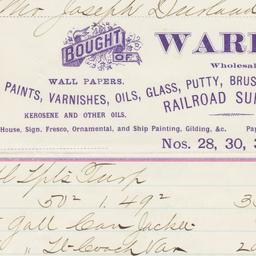 Mr Joseph Durland
BOUGHT OF
WAR
Wholesa
WALL PAPERS.
PAINTS, VARNISHES, OILS, GLASS, PUTTY, BRUS
KEROSENE AND OTHER OILS.
RAILROAD SU
House, Sign, Fresco, Ornamental, and Ship Painting, Gilding, &c. Pa
Nos. 28, 30, 3
Spts Turp
50² 1.49²
Gall Can Jacket
" Lt Coach Var